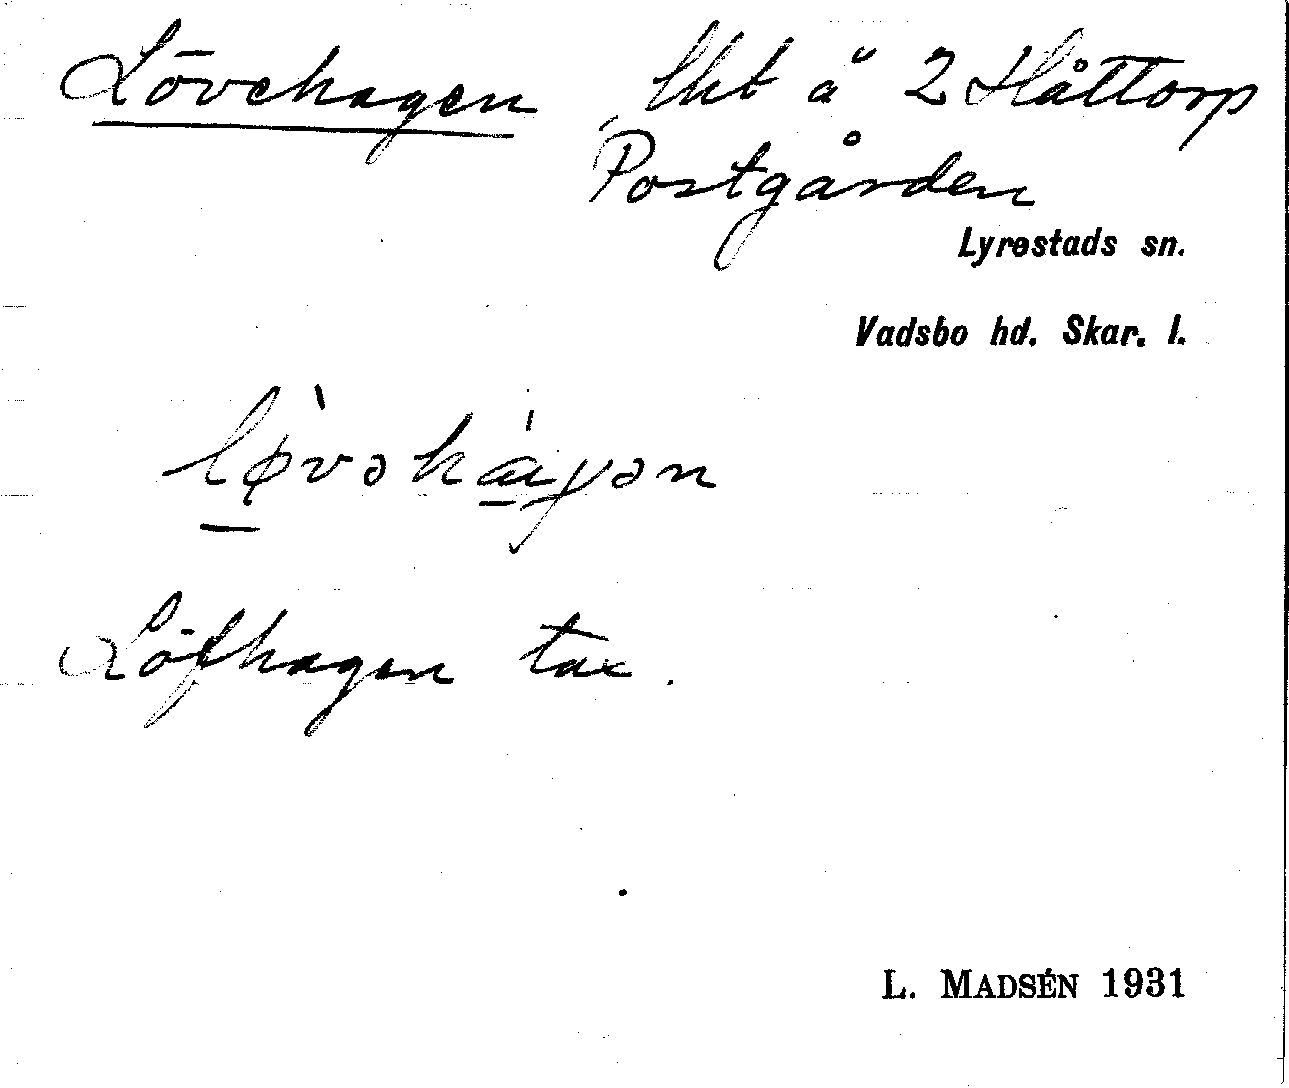 Lövehagen lht å 2 Håttorp
Postgården
Lyrestads sn.
Vadsbo hd. Skar. l.
lø̀vəhá̱gən
Löfhagen tax.
L. MADSÉN 1931